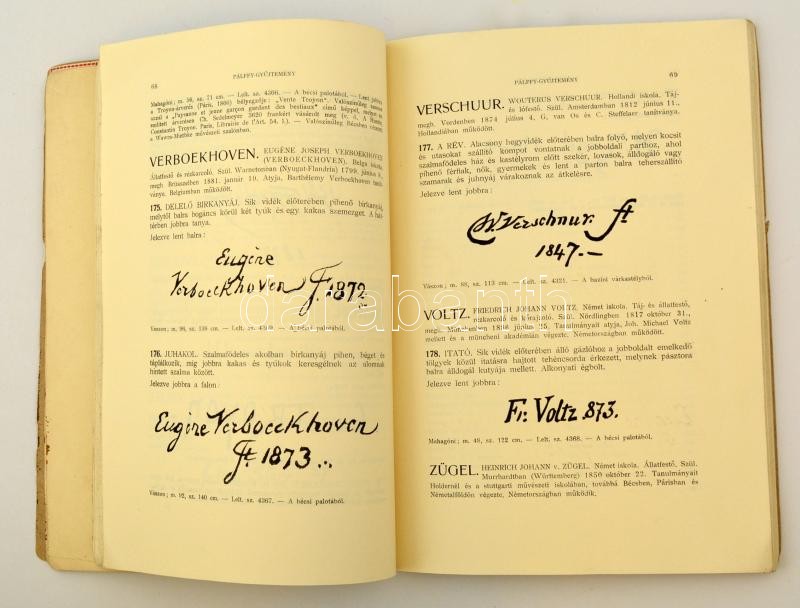 68
PÁLFFY-GYŰJTEMÉNY
Mahagóni; m. 56, sz. 71 cm. — Lelt. sz. 4366. — A bécsi palotából. — Lent jobbra
a Troyon-árverés (Páris, 1866) bélyegzője: „Vente Troyon". Valószínűleg azonos
a „Paysanne et jeune garçon gardant des bestiaux" című képpel, melyet az
említett árverésen Ch. Sedelmeyer 3620 frankért vásárolt meg (v. ö. A.
Constantin Troyon. Paris, Librairie de l'Art. 54. l.). — Valószínűleg Bécsben vétetett
a Wawra-Miethke művészeti szalonban.
VERBOEKHOVEN. EUGÈNE JOSEPH VERBOEKHOVEN
(VERBOECKHOVEN). Belga iskola.
Állatfestő és rézkarcoló. Szül. Warnetonban (Nyugat-Flandria) 1799. június 8.,
megh. Brüsszelben 1881. január 19. Atyja, Barthélemy Verboekhoven tanít-
ványa. Belgiumban működött.
175. DELELŐ BIRKANYÁJ. Sík vidék előterében pihenő birkanyáj,
melytől balra bogáncs körül két tyúk és egy kakas szemezget. A hát-
térben jobbra tanya.
Jelezve lent balra:
Eugène
Verboeckhoven F. 1872
Vászon; m. 96, sz. 136 cm. — Lelt. sz. 4369. — A bécsi palotából.
176. JUHAKOL. Szalmafödeles akolban birkanyáj pihen, béget és
táplálkozik, míg jobbra kakas és tyúkok keresgélnek az alomnak
hintett szalma között.
Jelezve jobbra a falon:
Eugène Verboeckhoven
ft 1873..
Vászon; m. 92, sz. 140 cm. — Lelt. sz. 4367. — A bécsi palotából.
PÁLFFY-GYŰJTEMÉNY
69
VERSCHUUR. WOUTERUS VERSCHUUR. Hollandi iskola. Táj-
és lófestő. Szül. Amsterdamban 1812 június 11.,
megh. Vordenben 1874 július 4. G. van Os és C. Steffelaer tanítványa.
Hollandiában működött.
177. A RÉV. Alacsony hegyvidék előterében balra folyó, melyen kocsit
és utasokat szállító kompot vontatnak a jobboldali parthoz, ahol
szalmafödeles ház és kastélyrom előtt szekér, lovasok, álldogáló vagy
pihenő férfiak, nők, gyermekek és lent a parton teherszállító
szamarak és juhnyáj várakoznak az átkelésre.
Jelezve lent jobbra:
W. Verschuur. ft
1847.—
Vászon; m. 88, sz. 113 cm. — Lelt. sz. 4321. — A bazini várkastélyból.
VOLTZ. FRIEDRICH JOHANN VOLTZ. Német iskola. Táj- és állatfestő,
rézkarcoló és kőrajzoló. Szül. Nördlingben 1817 október 31.,
megh. Münchenben 1886 június 25. Tanulmányait atyja, Joh. Michael Voltz
mellett és a müncheni akadémián végezte. Németországban működött.
178. ITATÓ. Sík vidék előterében álló gázlóhoz a jobboldalt emelkedő
tölgyek közül itatásra hajtott tehéncsorda érkezett, melynek pásztora
balra álldogál kutyája mellett. Alkonyati égbolt.
Jelezve lent jobbra:
Fr. Voltz 873.
Mahagóni; m. 48, sz. 122 cm. — Lelt. sz. 4368. — A bécsi palotából.
ZÜGEL. HEINRICH JOHANN v. ZÜGEL. Német iskola. Állatfestő. Szül.
Murrhardtban (Württemberg) 1850 október 22. Tanulmányait
Holdernél és a stuttgarti művészeti iskolában, továbbá Bécsben, Párisban és
Németalföldön végezte. Németországban működik.
darabanth